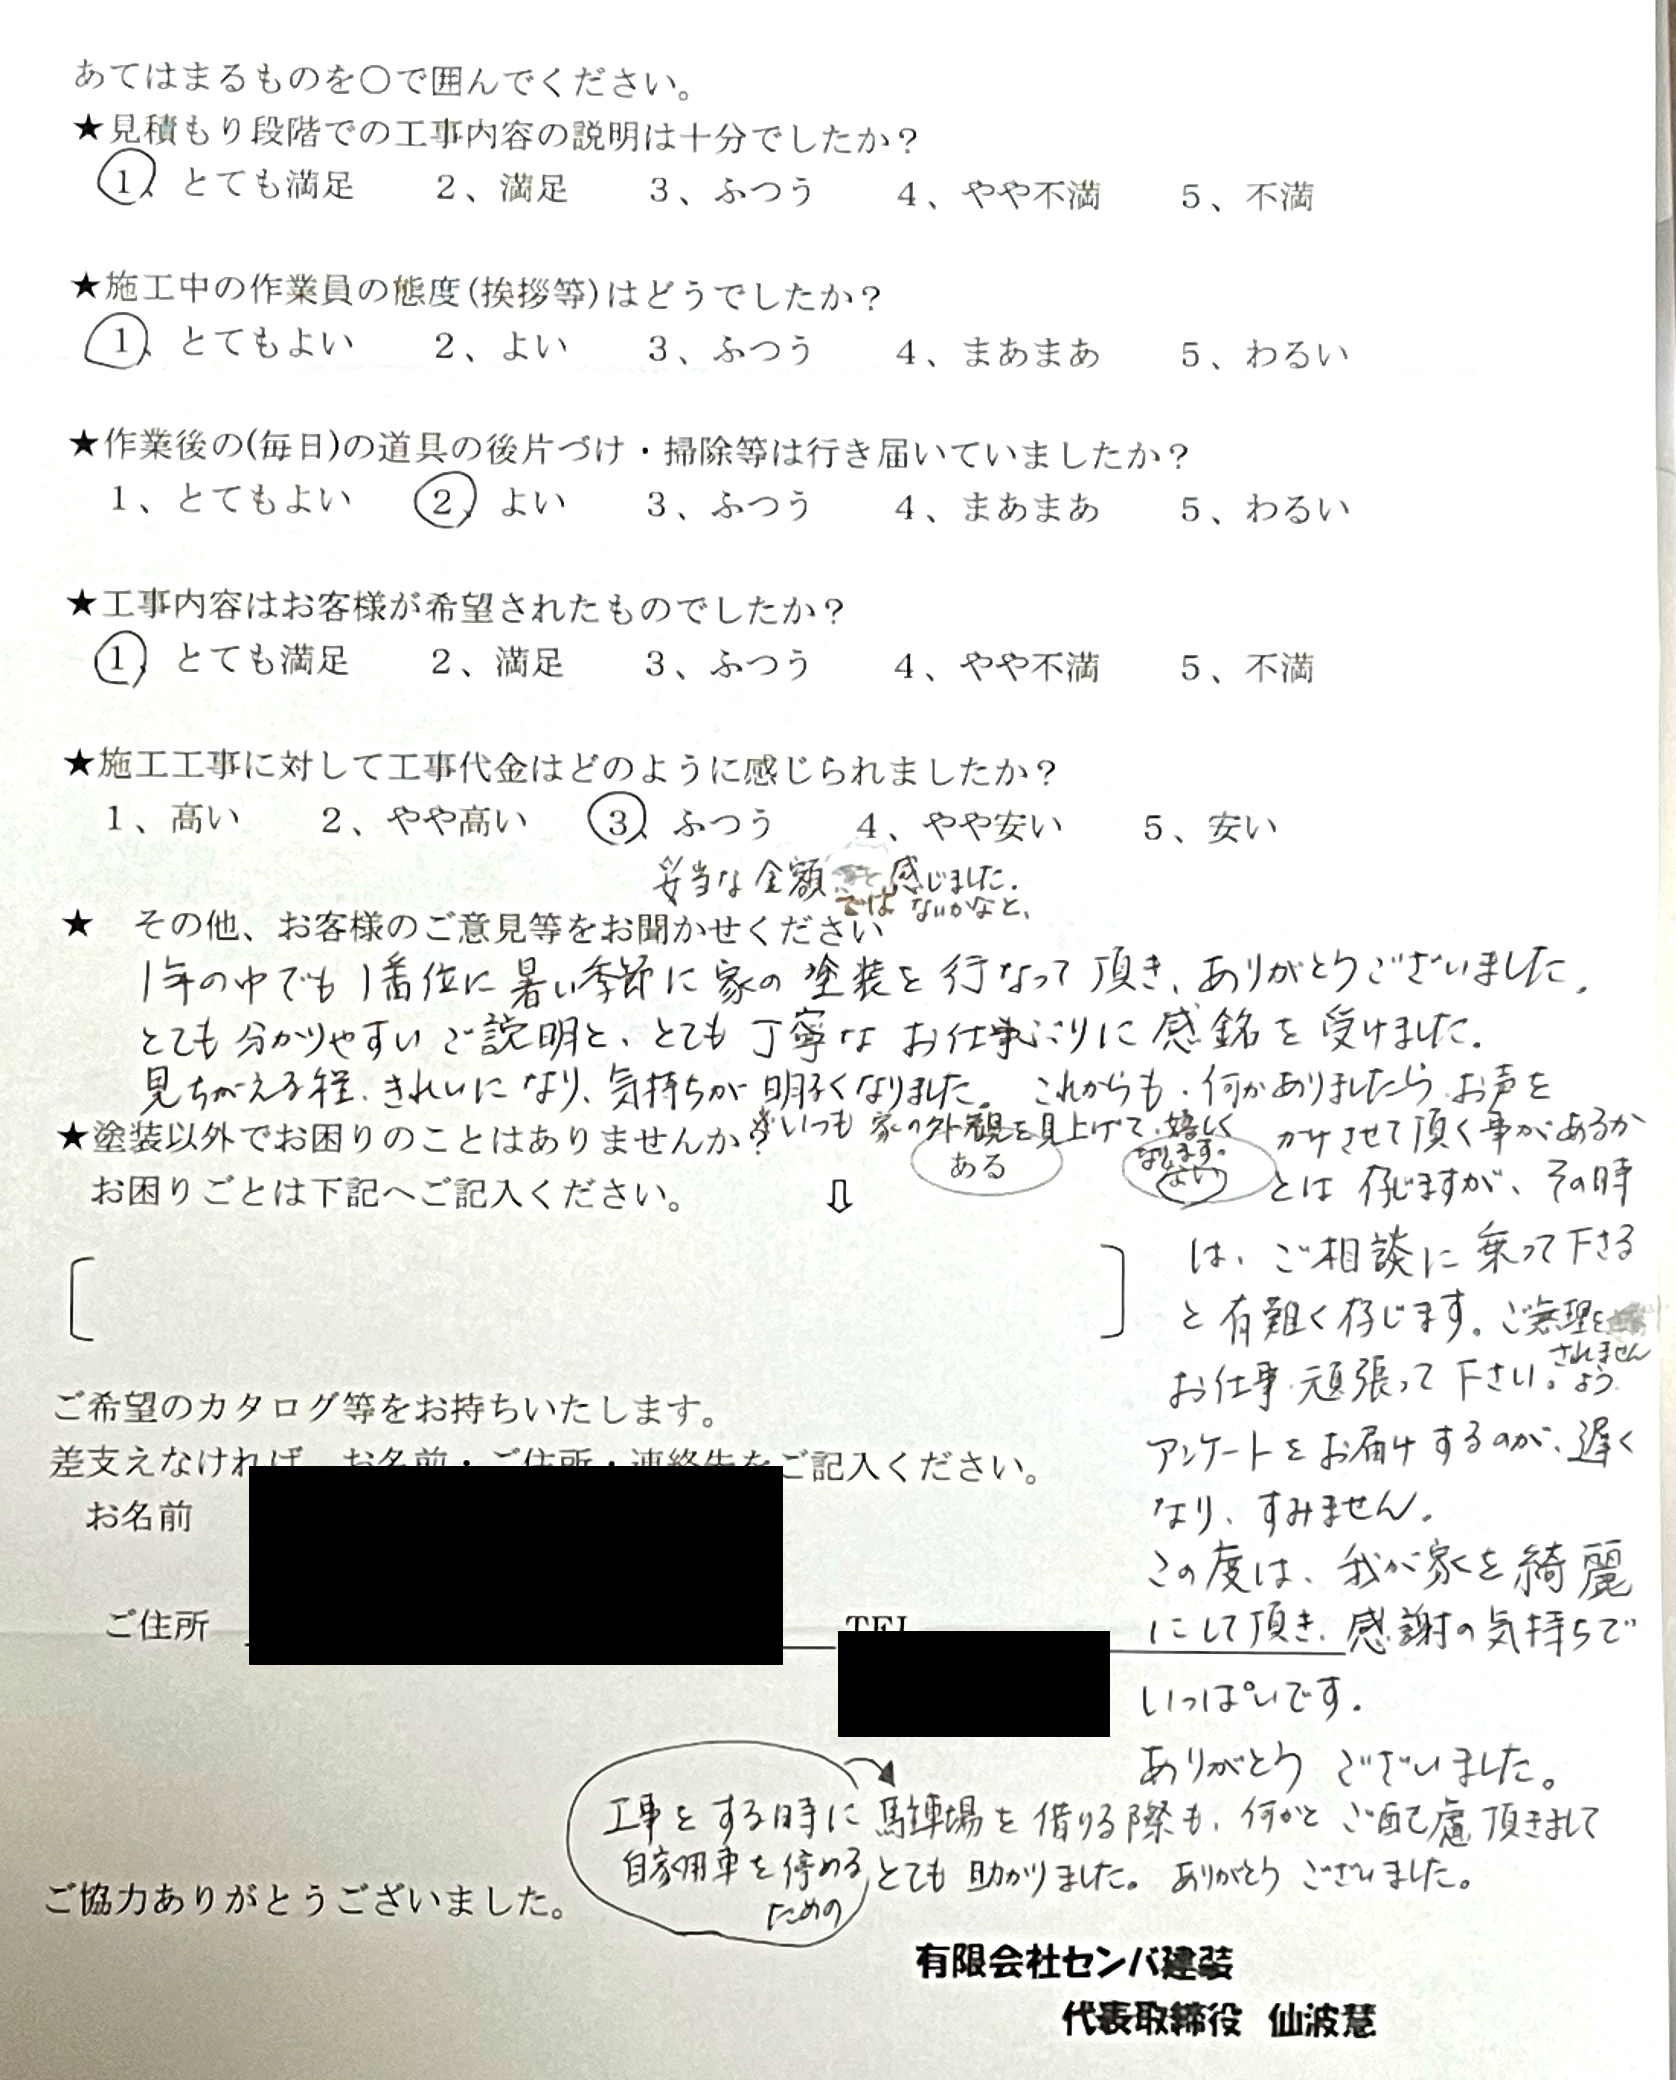 あてはまるものを〇で囲んでください。
★見積もり段階での工事内容の説明は十分でしたか？
1、とても満足 2、満足 3、ふつう 4、やや不満 5、不満
★施工中の作業員の態度(挨拶等)はどうでしたか？
1、とてもよい 2、よい 3、ふつう 4、まあまあ 5、わるい
★作業後の(毎日)の道具の後片づけ・掃除等は行き届いていましたか？
1、とてもよい 2、よい 3、ふつう 4、まあまあ 5、わるい
★工事内容はお客様が希望されたものでしたか？
1、とても満足 2、満足 3、ふつう 4、やや不満 5、不満
★施工工事に対して工事代金はどのように感じられましたか？
1、高い 2、やや高い 3、ふつう 4、やや安い 5、安い
妥当な金額 感じました。
ではないかなと、
★ その他、お客様のご意見等をお聞かせください
1年の中でも1番位に暑い季節に家の塗装を行なって頂き、ありがとうございました。
とても分かりやすいご説明と、とても丁寧なお仕事ぶりに感銘を受けました。
見ちがえる程、きれいになり、気持ちが明るくなりました。これからも、何かありましたら、お声を
★塗装以外でお困りのことはありませんか？
※いつも家の外観を見上げて、嬉しく
なります。
ある ない
お困りごとは下記へご記入ください。 ⇩
かけさせて頂く事があるか
とは存じますが、その時
は、ご相談に乗って下さる
と有難く存じます。ご無理を
されません
よう
お仕事頑張って下さい。
アンケートをお届けするのが、遅く
なり、すみません。
この度は、我が家を綺麗
にして頂き、感謝の気持ちで
いっぱいです。
ありがとうございました。
ご希望のカタログ等をお持ちいたします。
差支えなければ、お名前・ご住所・連絡先をご記入ください。
お名前
ご住所 TEL
工事をする時に駐車場を借りる際も、何かとご配慮頂きまして
自家用車を停める
ための
とても助かりました。ありがとうございました。
ご協力ありがとうございました。
有限会社センバ建装
代表取締役 仙波慧